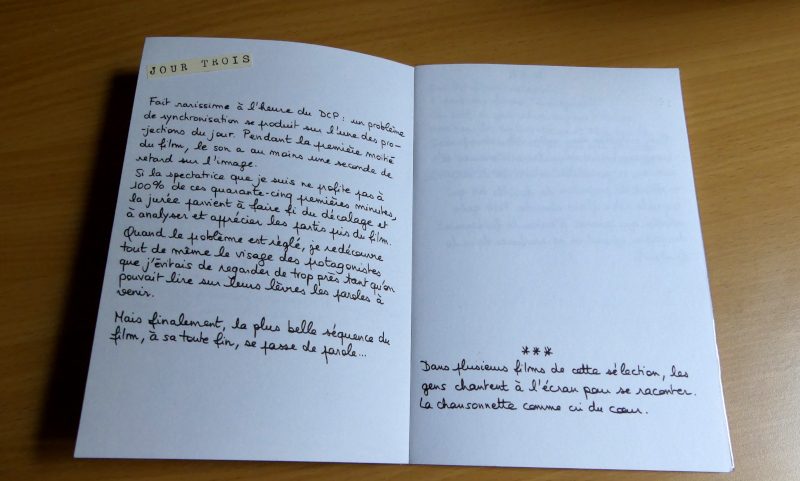 JOUR TROIS
Fait rarissime à l'heure du DCP : un problème
de synchronisation se produit sur l'une des pro-
-jections du jour. Pendant la première moitié
du film, le son a au moins une seconde de
retard sur l'image.
Si la spectatrice que je suis ne profite pas à
100% de ces quarante-cinq premières minutes,
la jurée parvient à faire fi du décalage et
à analyser et apprécier les partis pris du film.
Quand le problème est réglé, je redécouvre
tout de même le visage des protagonistes
que j'évitais de regarder de trop près tant qu'on
pouvait lire sur leurs lèvres les paroles à
venir.
Mais finalement, la plus belle séquence du
film, à sa toute fin, se passe de parole...
***
Dans plusieurs films de cette sélection, les
gens chantent à l'écran pour se raconter.
La chansonnette comme cri du cœur.